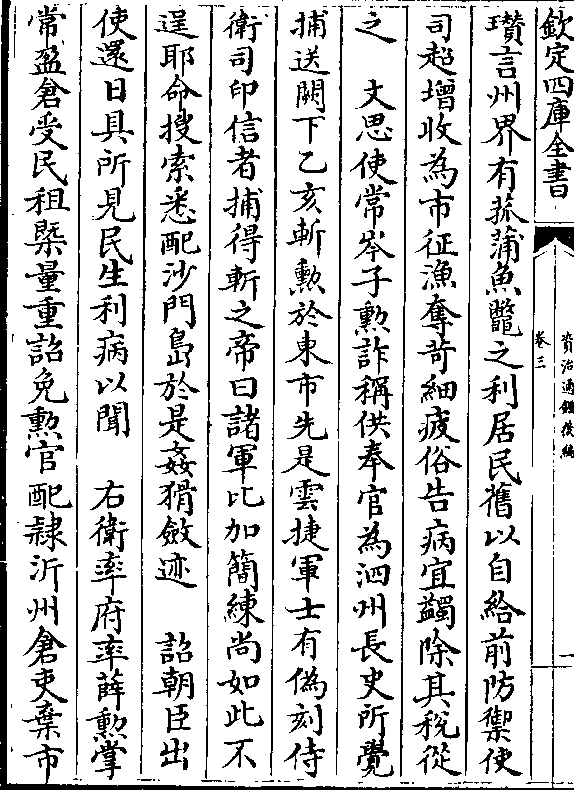 欽定四庫全書
資治通鑑後編
卷三
一
瓚言州界有菰蒲魚鼈之利居民舊以自給前防禦使
司超增收為市征漁奪苛細疲俗告病宜蠲除其稅從
之　文思使常岑子勲詐稱供奉官為泗州長史所覺
捕送闕下乙亥斬勲於東市先是雲捷軍士有偽刻侍
衛司印信者捕得斬之帝曰諸軍比加簡練尚如此不
逞耶命搜索悉配沙門島於是姦猾斂迹　詔朝臣出
使還日具所見民生利病以聞　右衛率府率薛勲掌
常盈倉受民租槩量重詔免勲官配隷沂州倉吏棄市